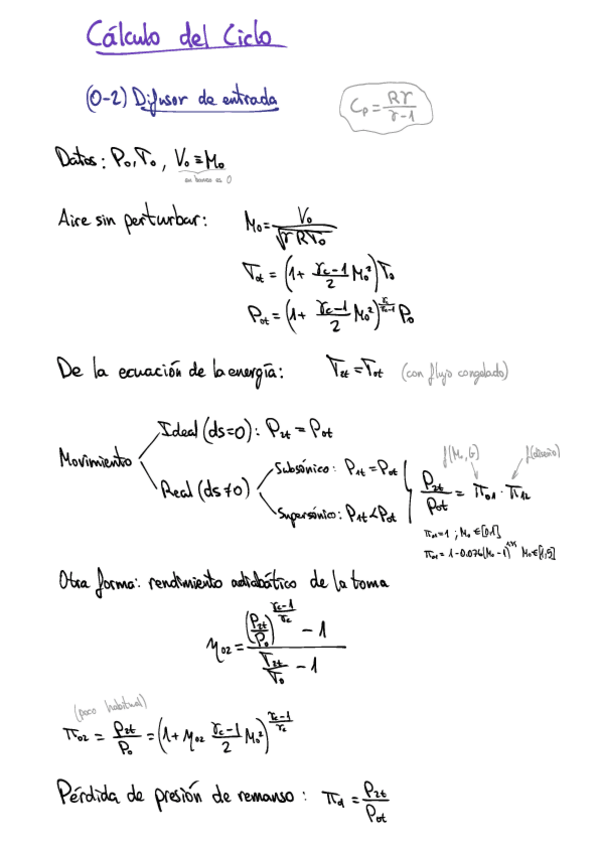 Cálculo del Ciclo
(0-2) Difusor de entrada
Cp = Rγ/(γ-1)
Datos: P₀, T₀, V₀ ≡ M₀
en banco es 0
Aire sin perturbar: M₀ = V₀/√(γRT₀)
T₀t = (1 + (γc-1)/2 M₀²) T₀
P₀t = (1 + (γc-1)/2 M₀²)^(γc/(γc-1)) P₀
De la ecuación de la energía: T₂t = T₀t (con flujo congelado)
Movimiento
Ideal (ds=0): P₂t = P₀t
Real (ds≠0)
Subsónico: P₁t = P₀t
Supersónico: P₁t < P₀t
f(M₀, G) f(diseño)
P₂t/P₀t = π₀₁ · π₁₂
π₀₁ = 1 ; M₀ ∈ [0,1]
π₀₁ = 1 - 0.076(M₀-1)^1.35 M₀ ∈ [1,5]
Otra forma: rendimiento adiabático de la toma
η₀₂ = ((P₂t/P₀)^((γc-1)/γc) - 1)/(T₂t/T₀ - 1)
(poco habitual)
π₀₂ = P₂t/P₀ = (1 + η₀₂ (γc-1)/2 M₀²)^((γc-1)/γc)
Pérdida de presión de remanso: πd = P₂t/P₀t